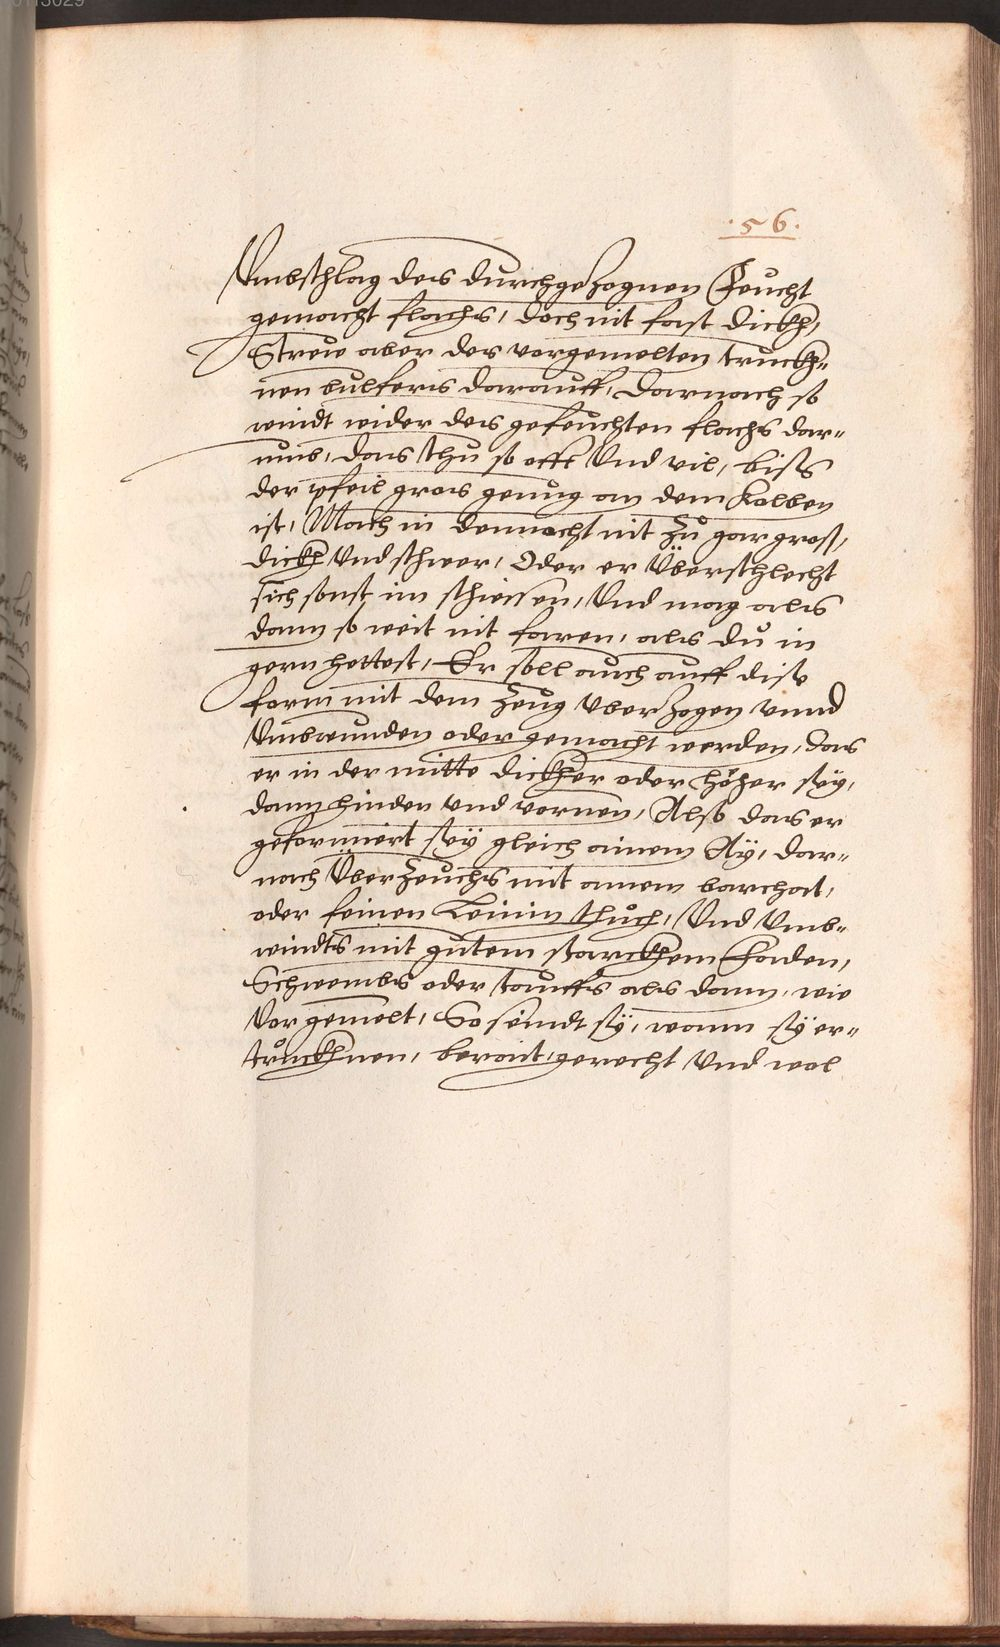 .56.
Vmbschlag des durchgezognen Feucht
gemacht flachs, doch nit fast dickh,
Strew aber des vorgemelten truckh=
nen bulfers darauff, darnach so
windt wider des gefeuchten flachs dar=
umb, das thu so offt Vnd vil, biss
der pfeil gros genug an dem Kolben
ist, Mach in dennocht nit zů gar gross,
dickh Vnd schwer, Oder er Überschlecht
sich sonst im schiessen, Vnd mag als
dann so weit nit faren, als du in
gern hettest, Er soll auch auff dise
form mit dem Zeug vberzogen vnnd
Vmbwunden oder gemacht werden, das
er in der mitte dickher oder höher sey,
dann hinden vnd vornen, Also das er
geformiert seÿ gleich ainem Aÿ, dar=
nach Überzeuchs mit ainem barchat,
oder feinen Leinin thůch, Vnd Vmb=
windts mit gutem starckhem faden,
Schwembs oder tauffs als dann, wie
Vorgemelt, So seindt sÿ, wann sÿ er=
trůckhnen, berait, gerecht Vnd wol